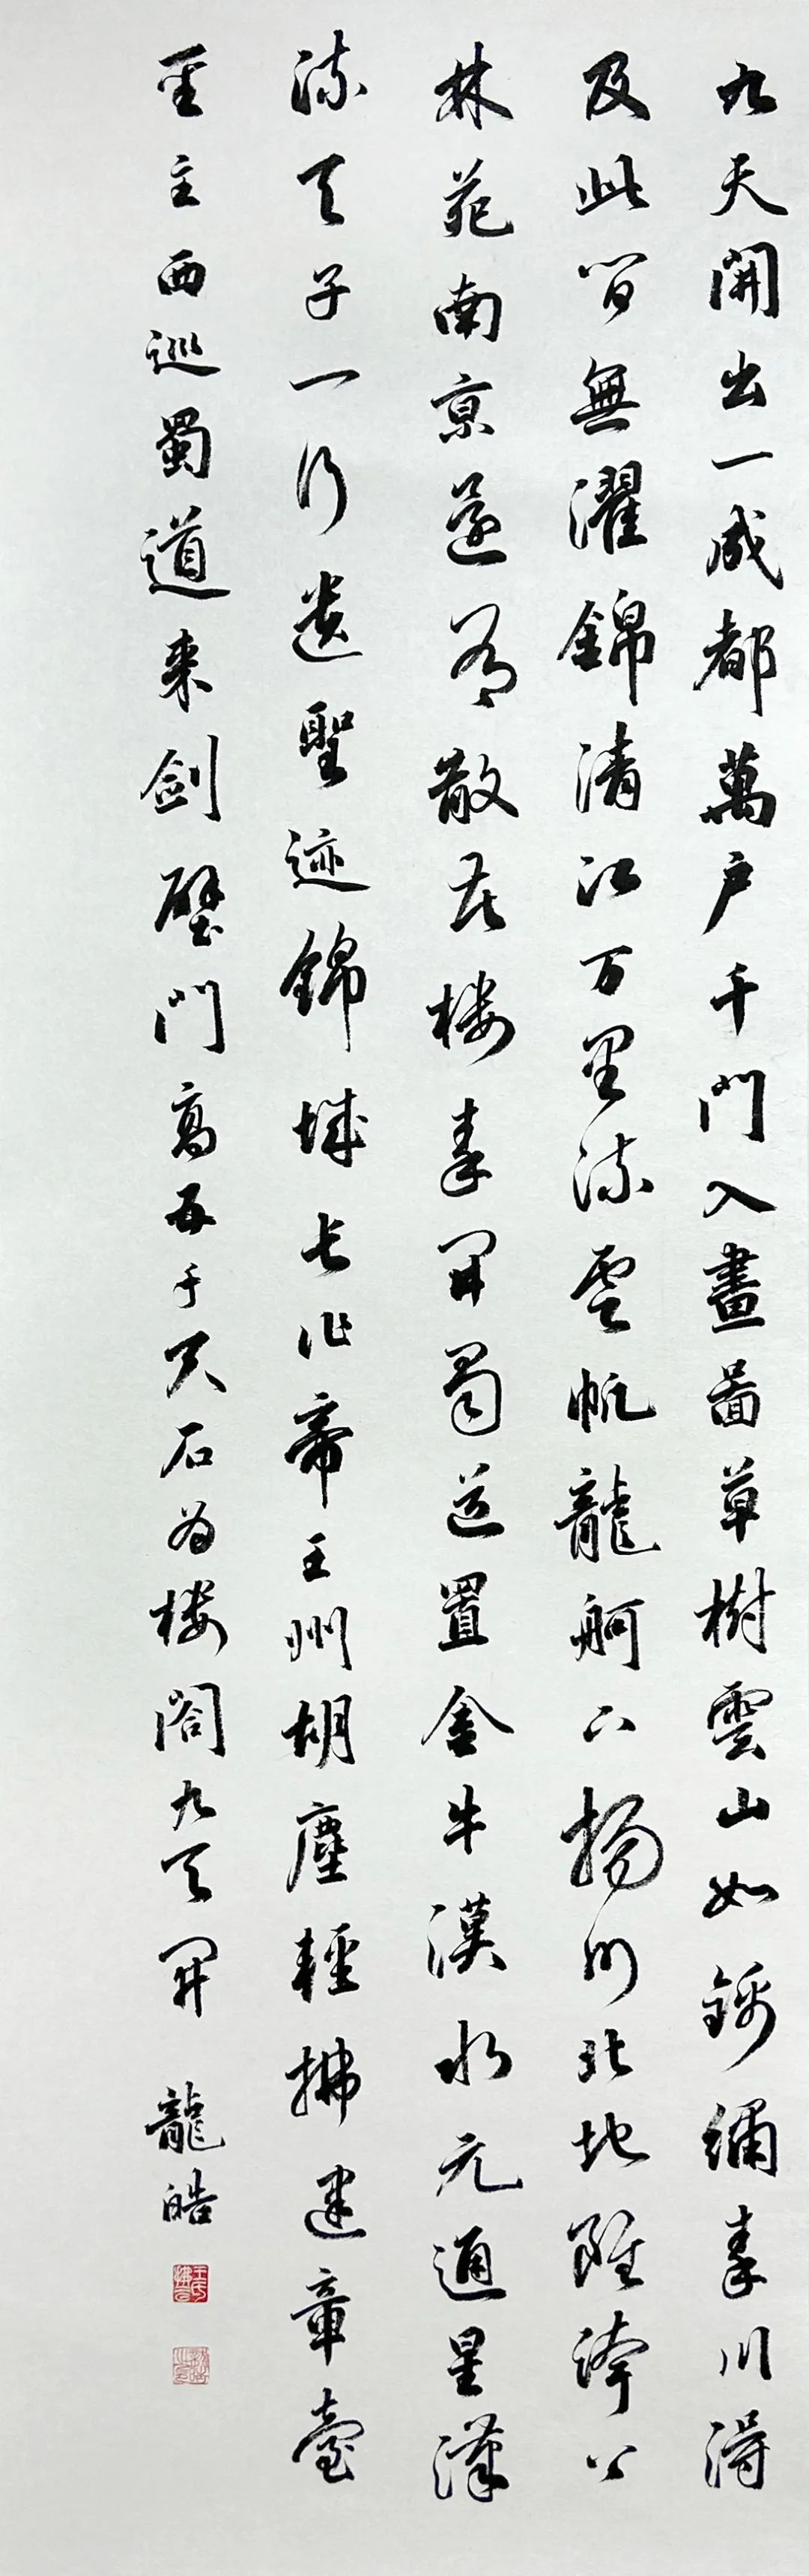 九天開出一成都萬戶千門入畫啚草樹雲山如錦繡秦川淂
及此间無濯錦清江万里流雲帆龍舸下揚州北地雖誇上
林苑南京還有散花楼秦開蜀道置金牛漢水元通星漢
流天子一行遺聖迹錦城長作帝王州胡塵輕拂建章臺
聖主西巡蜀道来剑壁門高五千尺石为楼阁九天開 龍皓